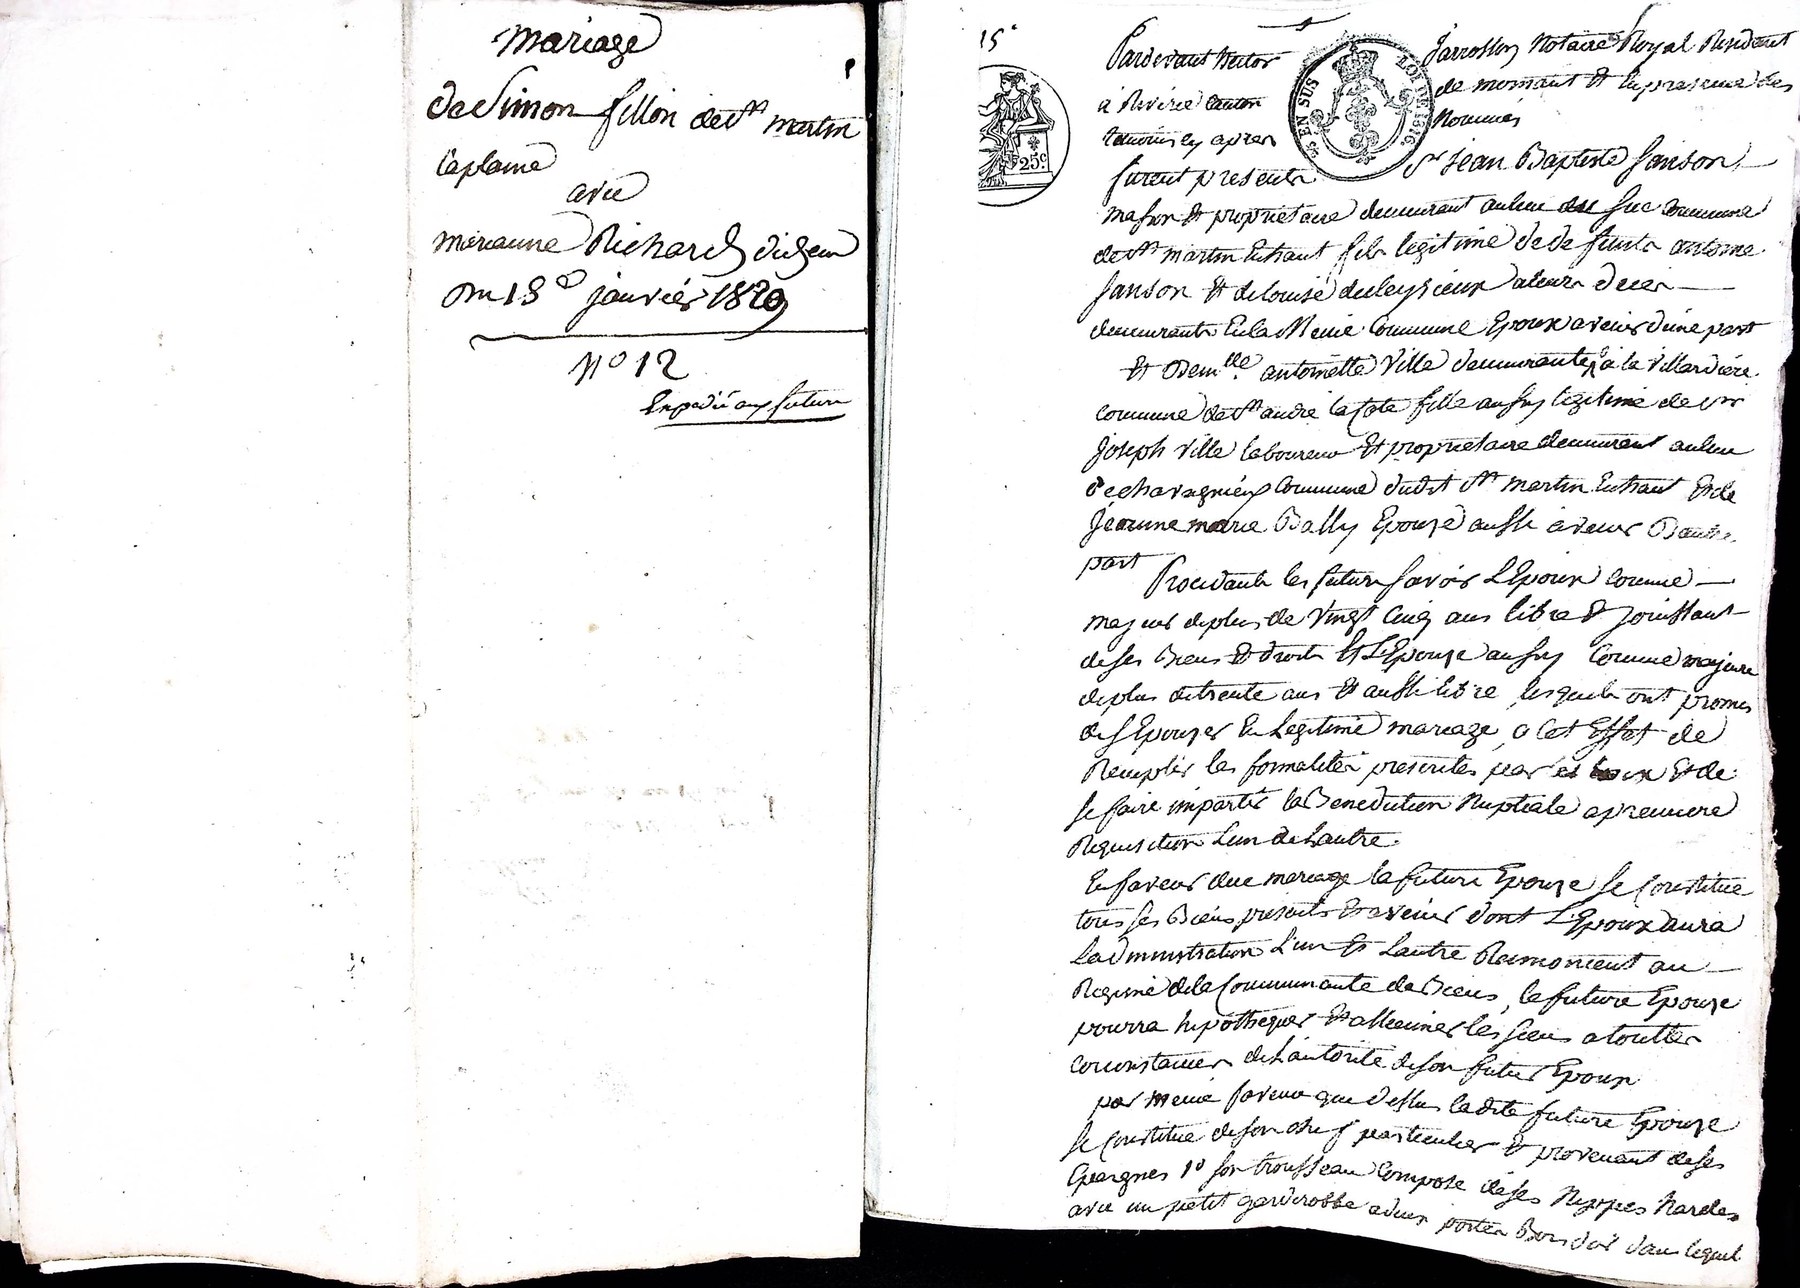 mariage
de Simon fillon de St martin
laplaine
avec
marianne Richard dudit lieu
Du 13e janvier 1829
No 12
Expedié aux futurs
15e
25c.
EN SUS
LOI DE 1816
Pardevant Me Jarrosson Notaire Royal Resident
à Riverie canton de mornant Et En presence des
temoins cy apres Nommés
furent presents Sr jean Baptiste Sanson
mason Et proprietaire demeurant au lieu du Suc commune
de St martin En haut fils legitime de defunts antoine
Sanson Et de louise duleysieux
demeurants En la Meme Commune Epoux avenir d'une part
Et Demlle antoinette Ville demeurante à la Villardière
commune de St andré la Cote fille aussy legitime de Sr
joseph Ville laboureur Et proprietaire demeurant au lieu
de chavagnieux Commune dudit St martin En haut Et de
jeanne marie Bally Epouze aussi avenir D'autre
part
Procedants les futurs savoir L'Epoux comme
majeur de plus de vingt Cinq ans libre Et jouissant
de ses Biens Et droits Et L'Epouze aussy Comme majeure
de plus de trente ans Et aussi libre, lesquels ont promis
de s'Epouzer En Legitime mariage, a Cet Effet de
Remplir les formalités prescrites par les loix Et de
se faire impartir la Benediction Nuptiale a premiere
Requisition L'un de L'autre.
En faveur due mariage la future Epouze se Constitue
tous ses Biens presents Et avenir dont L'Epoux aura
L'administration L'un Et L'autre Renoncent au
Regime de la Communauté de Biens, la future Epouze
pourra hipothequer Et alliener les siens a touttes
circonstances de L'autorité de son futur Epoux
par meme faveur que dessus ladite future Epouze
se Constitue de son chef particulier Et provenant de ses
Epargnes 1o son trousseau Composé de ses Nippes hardes
avec un petit garderobbe a deux portes Bois dur dans lequel